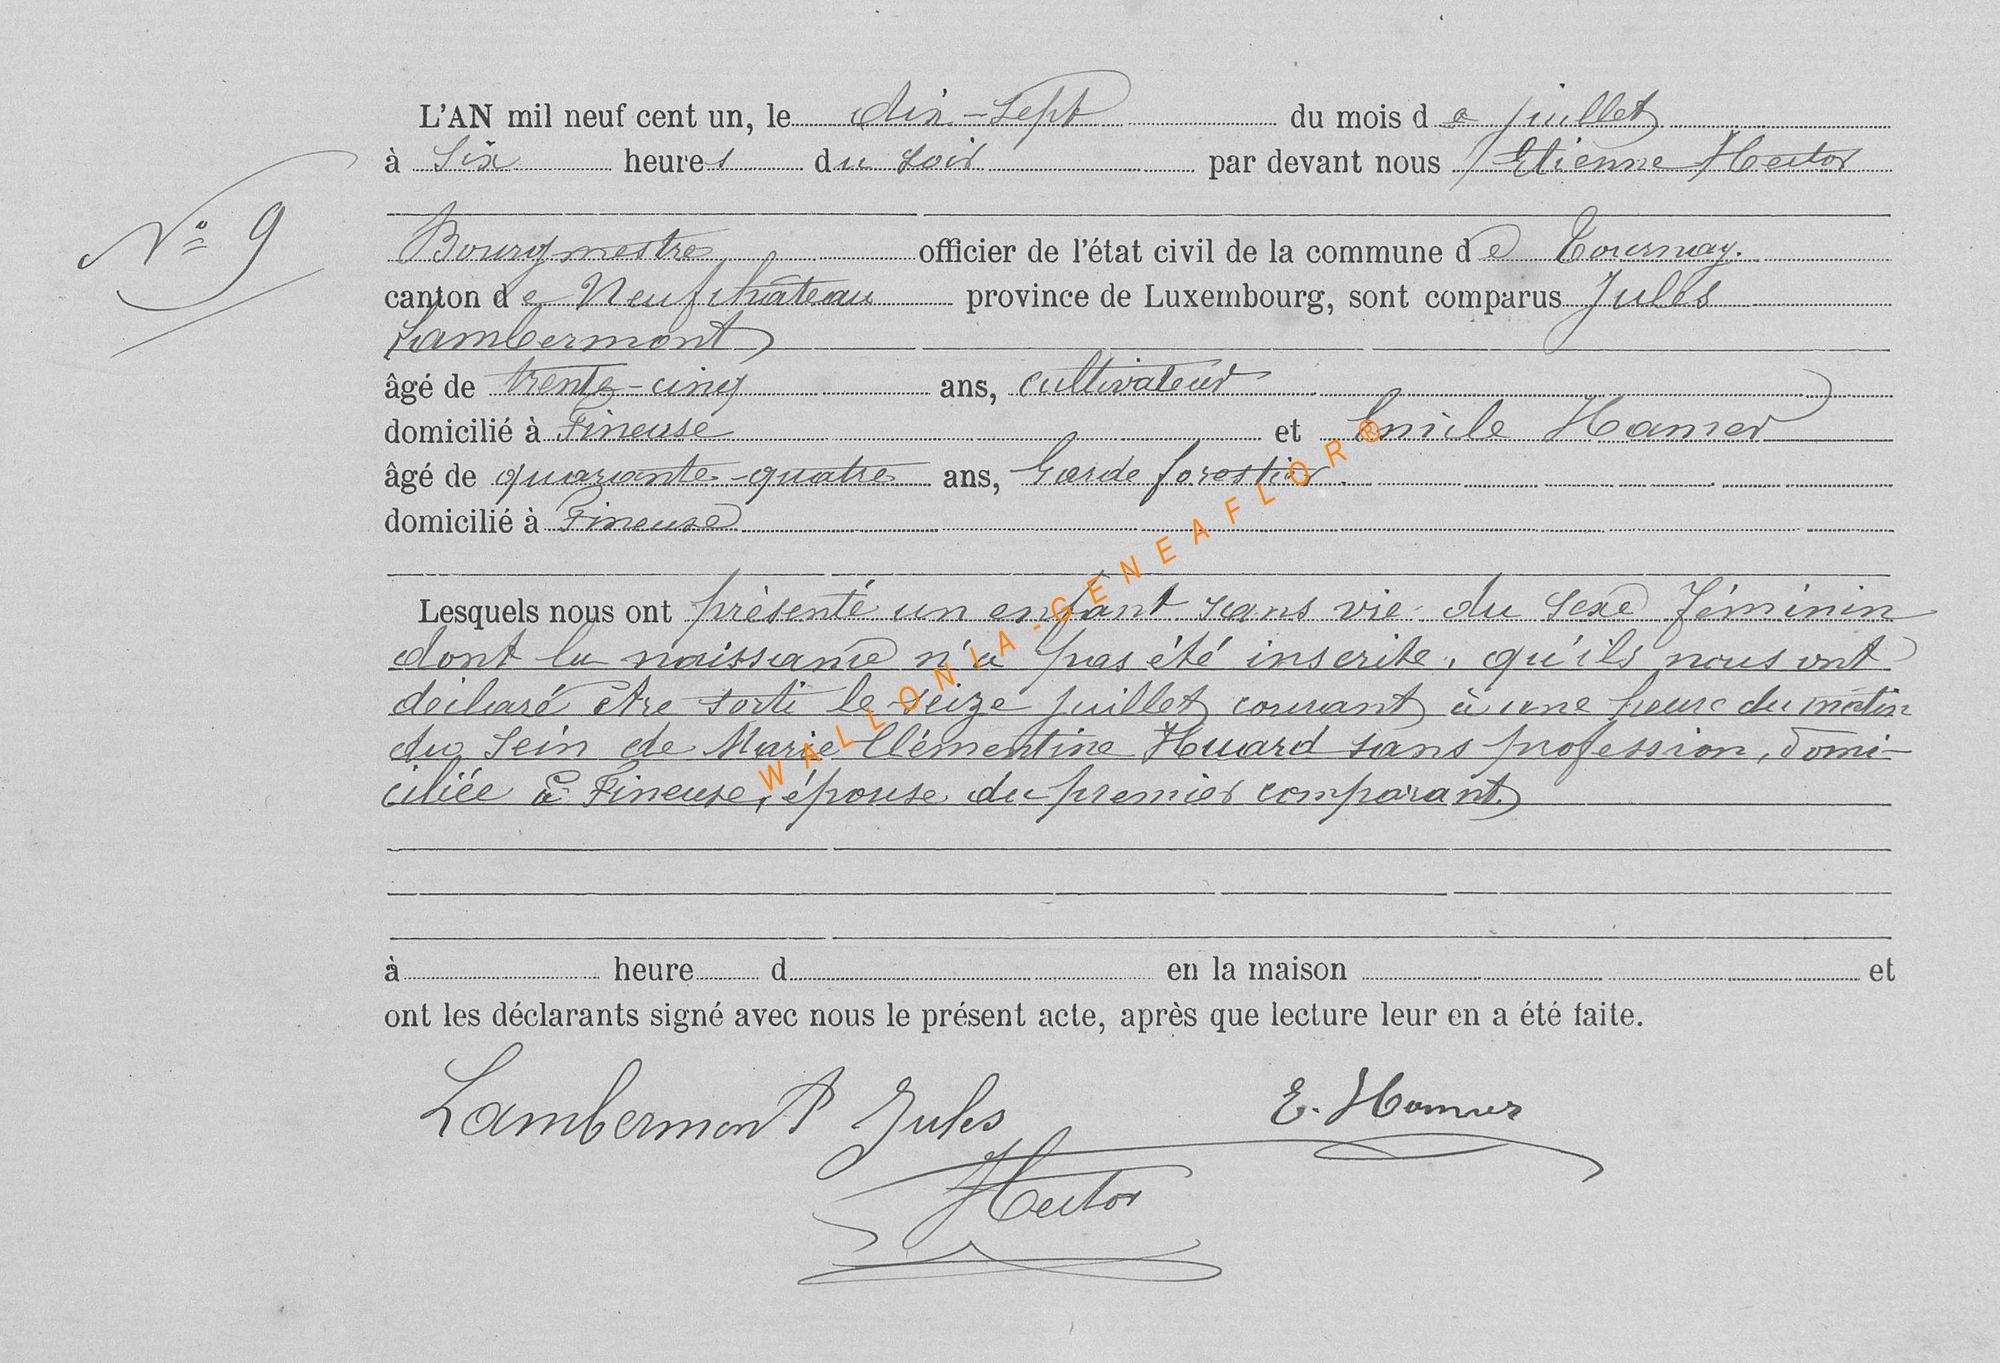 L'AN mil neuf cent un, le dix-sept du mois de juillet
à six heures du soir par devant nous Etienne Hector
N° 9
Bourgmestre officier de l'état civil de la commune de Tournay.
canton de Neufchâteau province de Luxembourg, sont comparus Jules
Lambermont
âgé de trente-cinq ans, cultivateur
domicilié à Fineuse et Emile Hamer
âgé de quarante-quatre ans, Garde forestier.
domicilié à Fineuse
Lesquels nous ont présenté un enfant sans vie du sexe féminin
dont la naissance n'a pas été inscrite, qu'ils nous ont
déclaré être sorti le seize juillet courant à une heure du matin
du sein de Marie Clémentine Huard sans profession, domi-
ciliée à Fineuse, épouse du premier comparant
à heure d en la maison et
ont les déclarants signé avec nous le présent acte, après que lecture leur en a été faite.
Lambermont Jules E. Hamer
Hector
WALLONIA-GENEAFLOR®